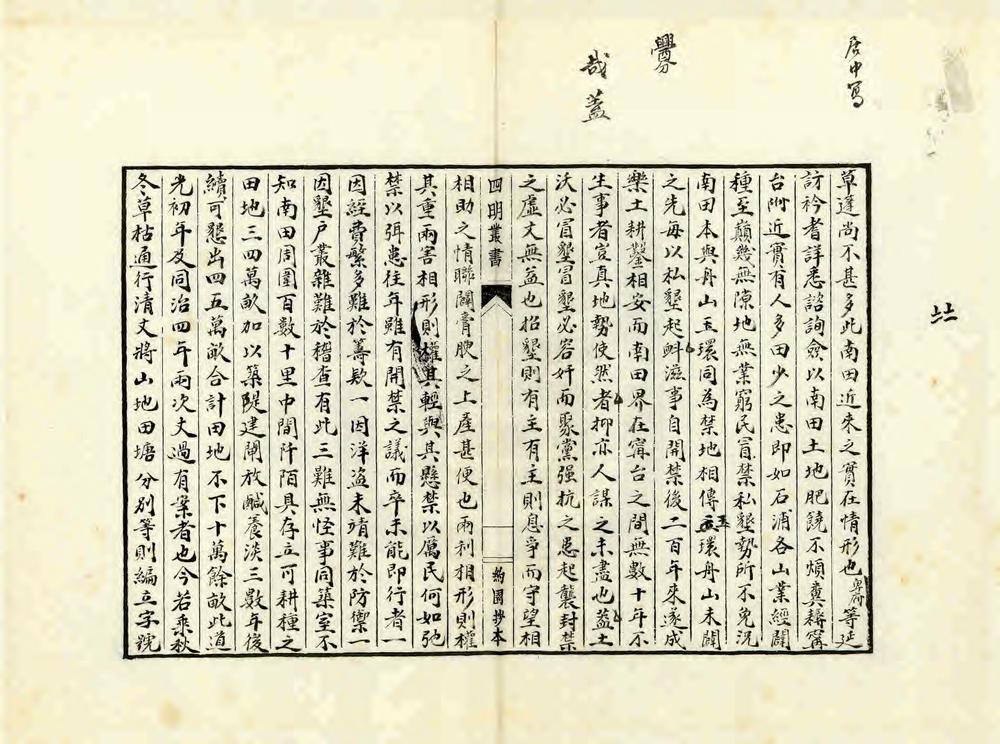 居中写
釁
哉蓋
草蓬尚不甚多此南田近來之實在情形也與俞等延
訪衿耆詳悉諮詢僉以南田土地肥饒不煩糞耨甯
台附近實有人多田少之患即如石浦各山業經開
種至巔幾無隙地無業窮民冒禁私墾勢所不免況
南田本與舟山玉環同為禁地相傳玉環舟山未闢
之先每以私墾起衅滋事自開禁後二百年來遂成
樂土耕鑿相安而南田界在甯台之間無數十年不
生事者豈真地勢使然者抑亦人謀之未盡也蓋土
沃必冒墾冒墾必容奸而聚黨强抗之患起襲封禁
之虛文無益也招墾則有主有主則息爭而守望相
四明叢書
約園抄本
相助之情聯闢膏腴之土產甚便也兩利相形則權
其重兩害相形則權其輕與其懸禁以厲民何如弛
禁以弭患往年雖有開禁之議而卒未能即行者一
因經費繁多難於籌款一因洋盜未靖難於防禦一
因墾户叢雜難於稽查有此三難無怪事同築室不
知南田周圍百數十里中間阡陌具存立可耕種之
田地三四萬畝加以築隄建閘放鹹養淡三數年後
續可懇出四五萬畝合計田地不下十萬餘畝此道
光初年及同治四年兩次丈過有案者也今若乘秋
冬草枯通行清丈將山地田塘分别等則編立字號